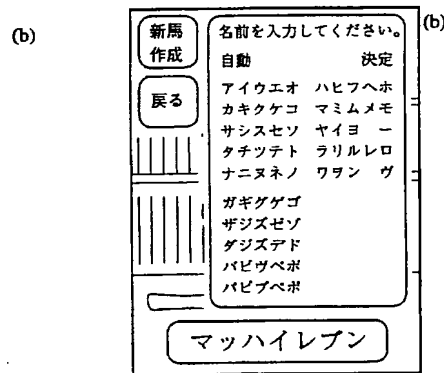 (b)
(b)
新馬
作成
戻る
名前を入力してください。
自動 決定
アイウエオ ハヒフヘホ
カキクケコ マミムメモ
サシスセソ ヤイヨ ー
タチツテト ラリルレロ
ナニヌネノ ワヲン ヴ
ガギグゲゴ
ザジズゼゾ
ダジズデド
バビヴベボ
パピプペポ
マッハイレブン